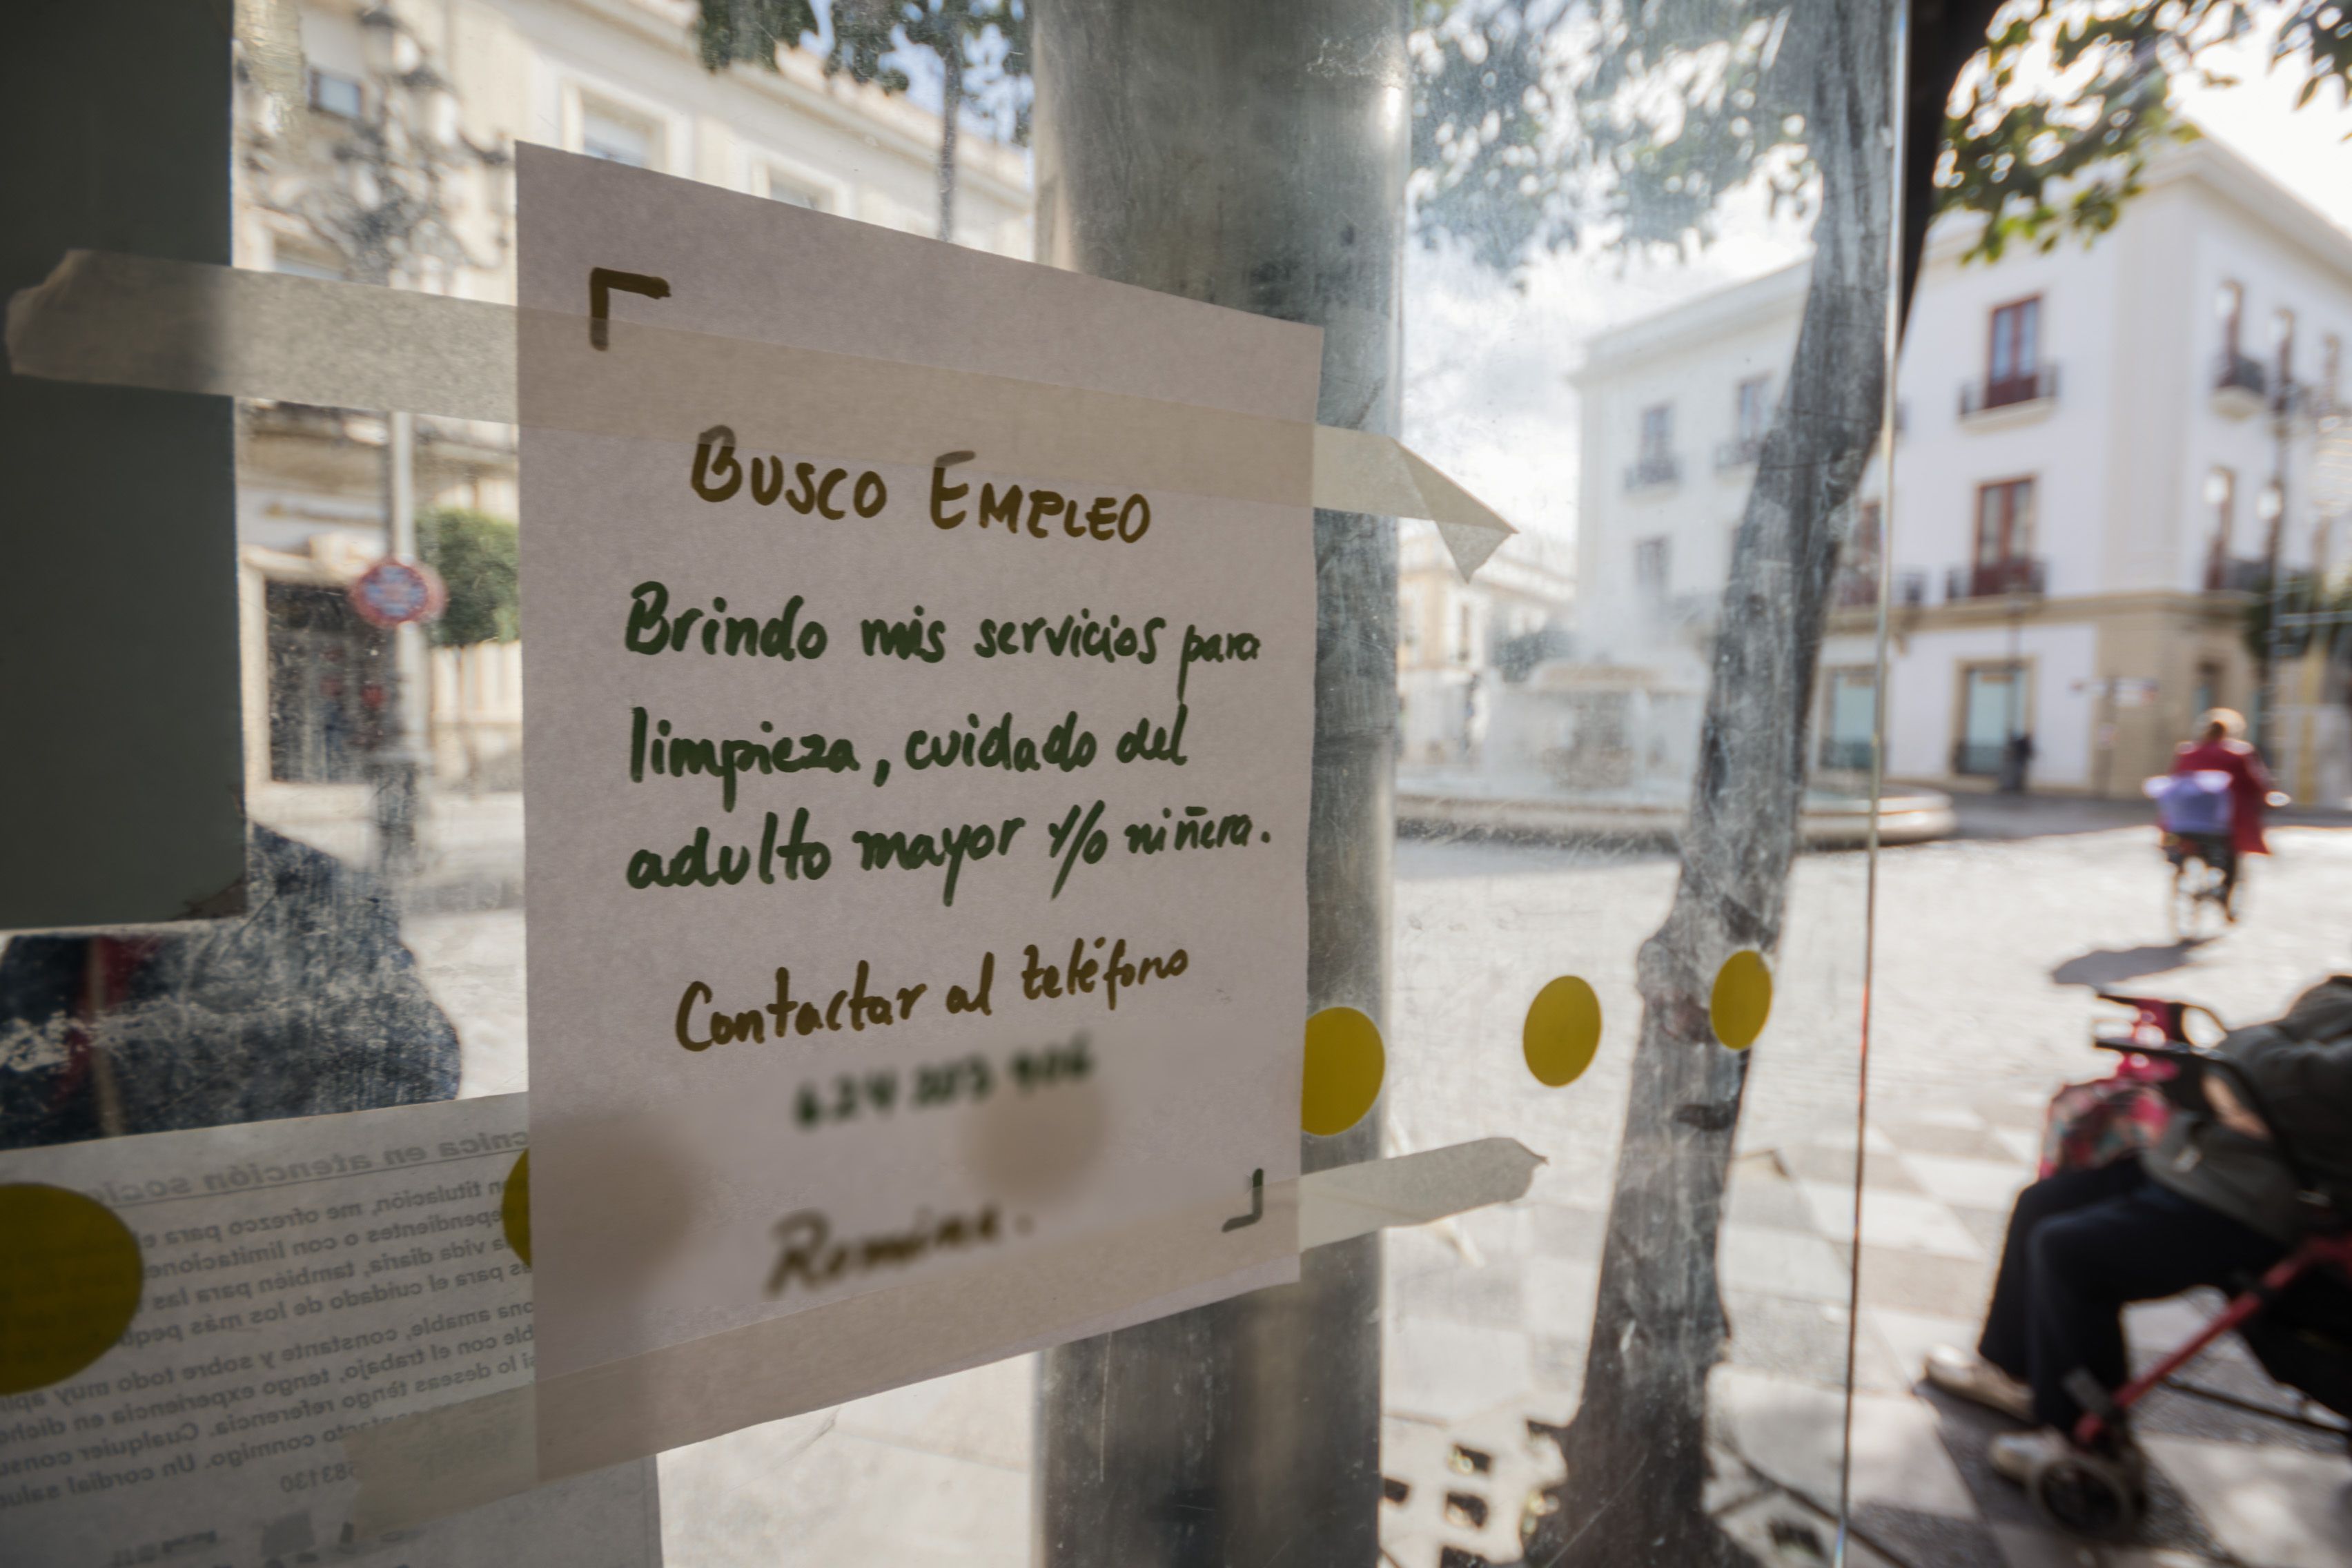 BUSCO EMPLEO
Brindo mis servicios para
limpieza, cuidado del
adulto mayor y/o niñera.
Contactar al teléfono
en atención
titulación, me ofrezco para
o con limitaciones
vida diaria, también para las
para el cuidado de los más
amable, constante y sobre todo muy
con el trabajo, tengo experiencia en
si lo deseas tengo referencia. Cualquier
conmigo. Un cordial